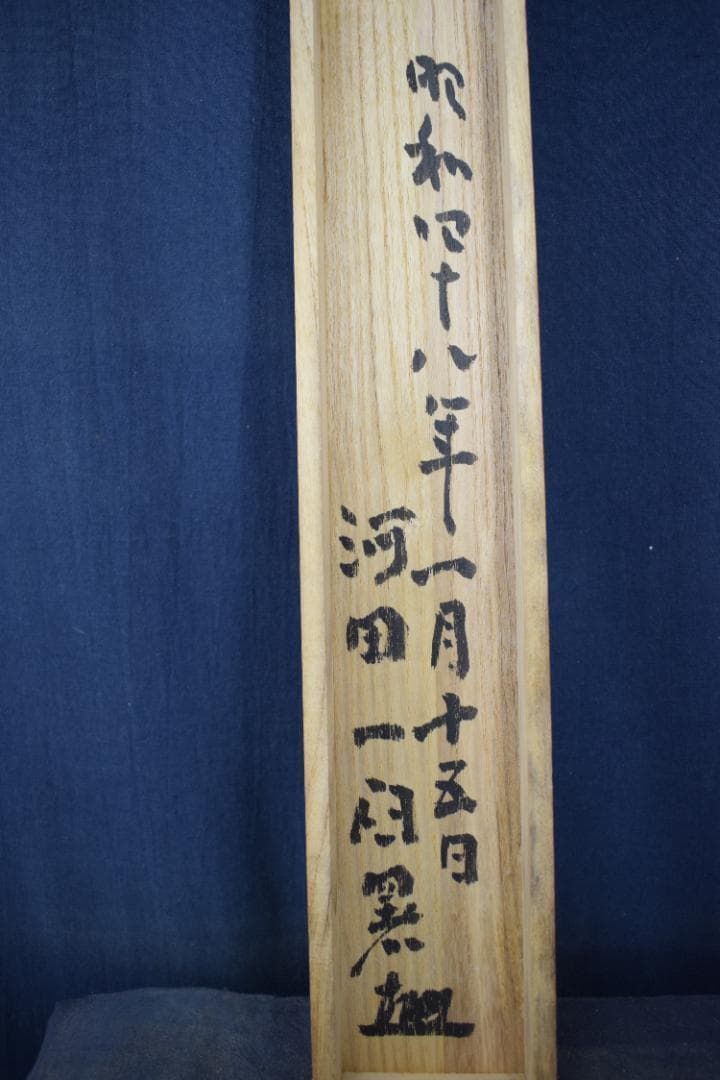 昭和四十八年一月十五日
河田一臼墨